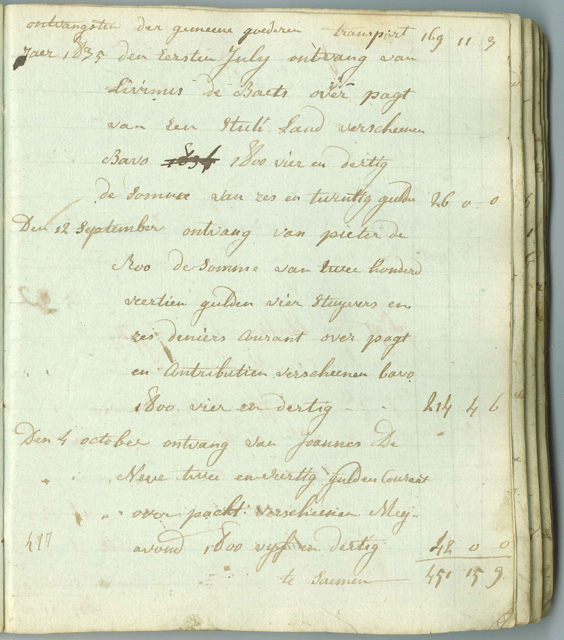 ontvangsten der gemeene goederen transpirt 169 11 3
Jaer 1835 den Eersten July ontvang van
Livinus de Baets over pagt
van Een Stuk Land verscheenen
Bavo 1834 1800 vier en dertig
de Somme van zes en twintig gulde 26 0-0
Den 12 September ontvang van pieter de
Roo de Somme van twee honderd
veertien gulden vier Stuyvers en
zes deniers Courant over pagt
en Contributien verscheenen bavo
1800 vier en dertig - - 214 4 6
Den 4 october ontvang van Joannes De
Neve twee en veertig gulden Courant
over pacht verscheenen Mey-
avond 1800 vyf en dertig 42 0 0
417
te Saemen 451 15 9